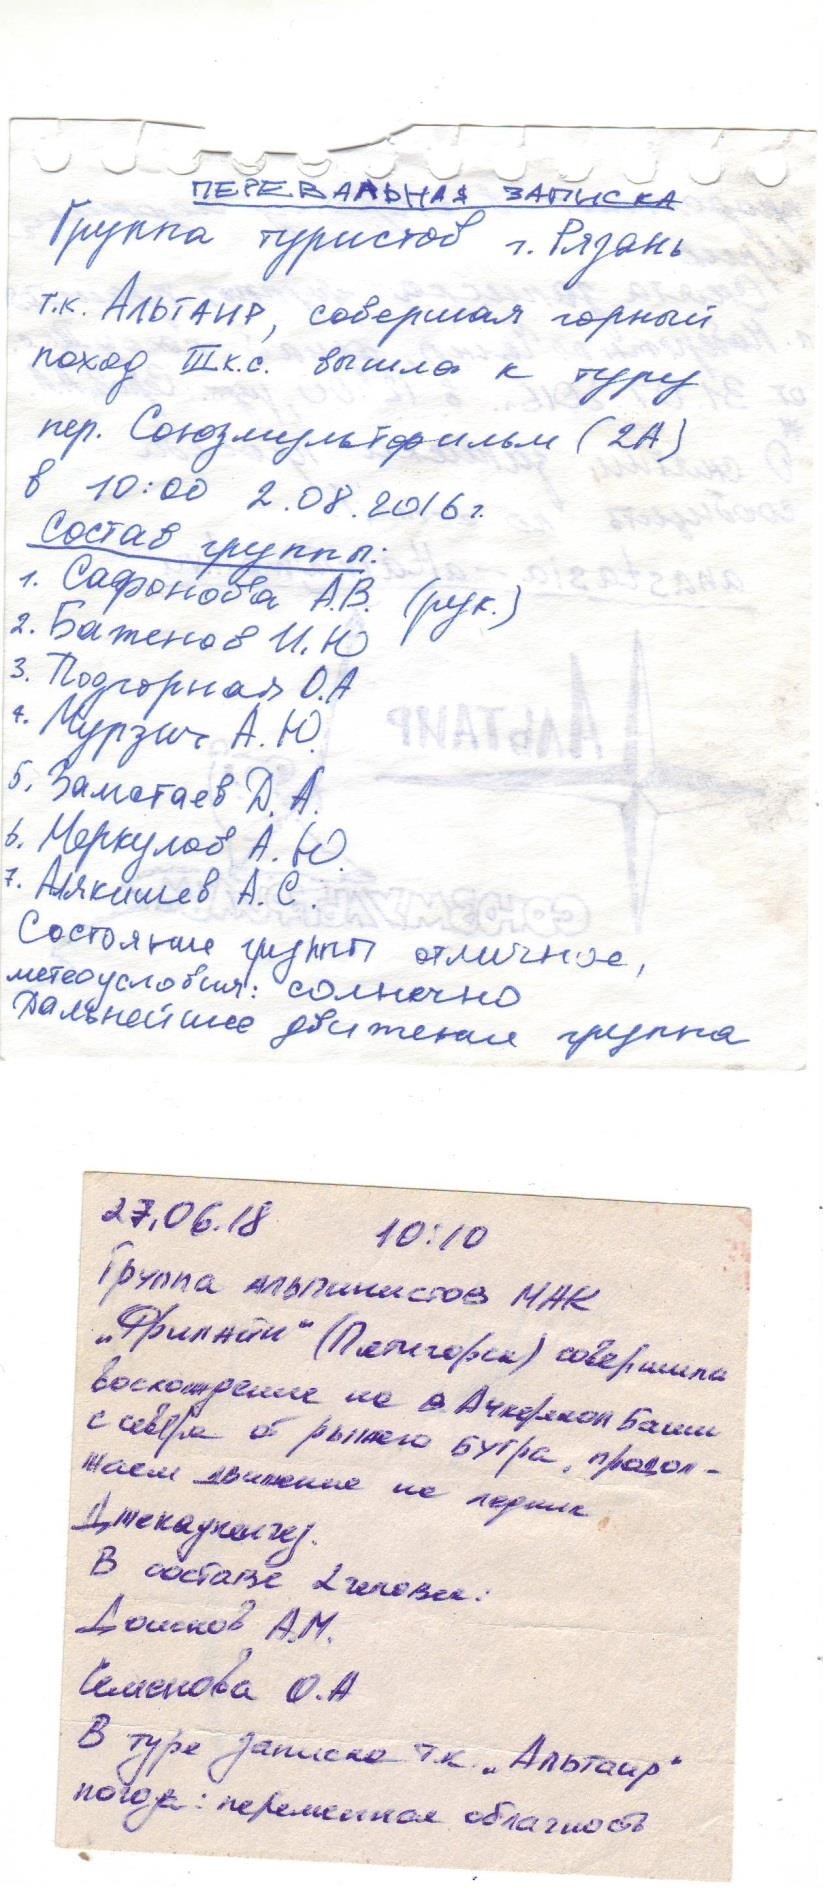 ПЕРЕВАЛЬНАЯ ЗАПИСКА
Группа туристов г. Рязань
т.к. АЛЬТАИР, совершая горный
поход III к.с. вышла к туру
пер. Союзмультфильм (2А)
в 10:00 2.08.2016г.
Состав группы:
1. Сафонова А.В. (рук.)
2. Баженов И.Ю
3. Подгорная О.А
4. Мурзич А.Ю.
5. Заматаев Д.А.
6. Меркулов А.Ю.
7. Алякишев А.С.
Состояние группы отличное,
метеоусловия: солнечно
Дальнейшее движение группа
АЛЬТАИР
СОЮЗМУЛЬТФИЛЬМ
27.06.18 10:10
Группа альпинистов МАК
(Пятигорск) совершила
восхождение на в. Ачкерякол Баши
с севера от рыжего бугра, продол-
жаем движение на ледник
Джикаугенгез.
В составе 2 человек:
А.М.
Семенова О.А
В туре записка т.к. „Альтаир“
погода: переменная облачность